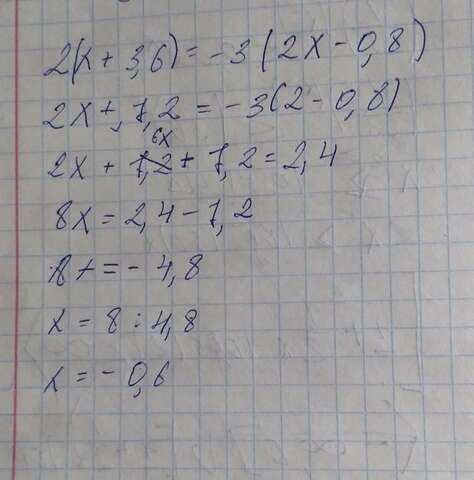 2(x + 3,6) = -3 (2x - 0,8)
2x + 7,2 = -3(2 - 0,8)
2x + 6x + 7,2 = 2,4
8x = 2,4 - 7,2
8x = - 4,8
x = 8 : 4,8
x = - 0,6